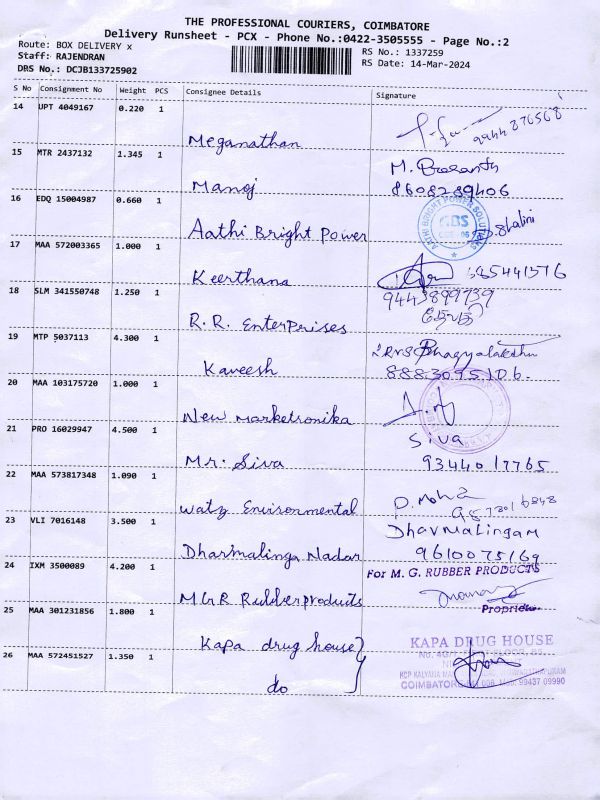 THE PROFESSIONAL COURIERS, COIMBATORE
Delivery Runsheet - PCX - Phone No.:0422-3505555 - Page No.:2
Route: BOX DELIVERY x
RS No.: 1337259
Staff: RAJENDRAN
RS Date: 14-Mar-2024
DRS No.: DCJB133725902
S No Consignment No Weight PCS Consignee Details Signature
14 UPT 4049167 0.220 1
Meganathan 9944876568
15 MTR 2437132 1.345 1
Manoj 8608289406
16 EDQ 15004987 0.660 1
Aathi Bright Power
AATHI BRIGHT POWER SOLUTIONS
17 MAA 572003365 1.000 1
Keerthana
18 SLM 341550748 1.250 1
R.R. Enterprises 9443899739
19 MTP 5037113 4.300 1
Kaveesh
20 MAA 103175720 1.000 1
New Marketronika
21 PRO 16029947 4.500 1
Siva
Mr. Siva 9344017765
22 MAA 573817348 1.090 1
Watz Environmental
23 VLI 7016148 3.500 1
Dharmalingam
Dharmalinga Nadar 9610075169
24 IXM 3500089 4.200 1
For M. G. RUBBER PRODUCTS
MGR Rubber products
Proprietor
25 MAA 301231856 1.800 1
Kapa drug house
KAPA DRUG HOUSE
26 MAA 572451527 1.350 1
do
COIMBATORE
99437 09990